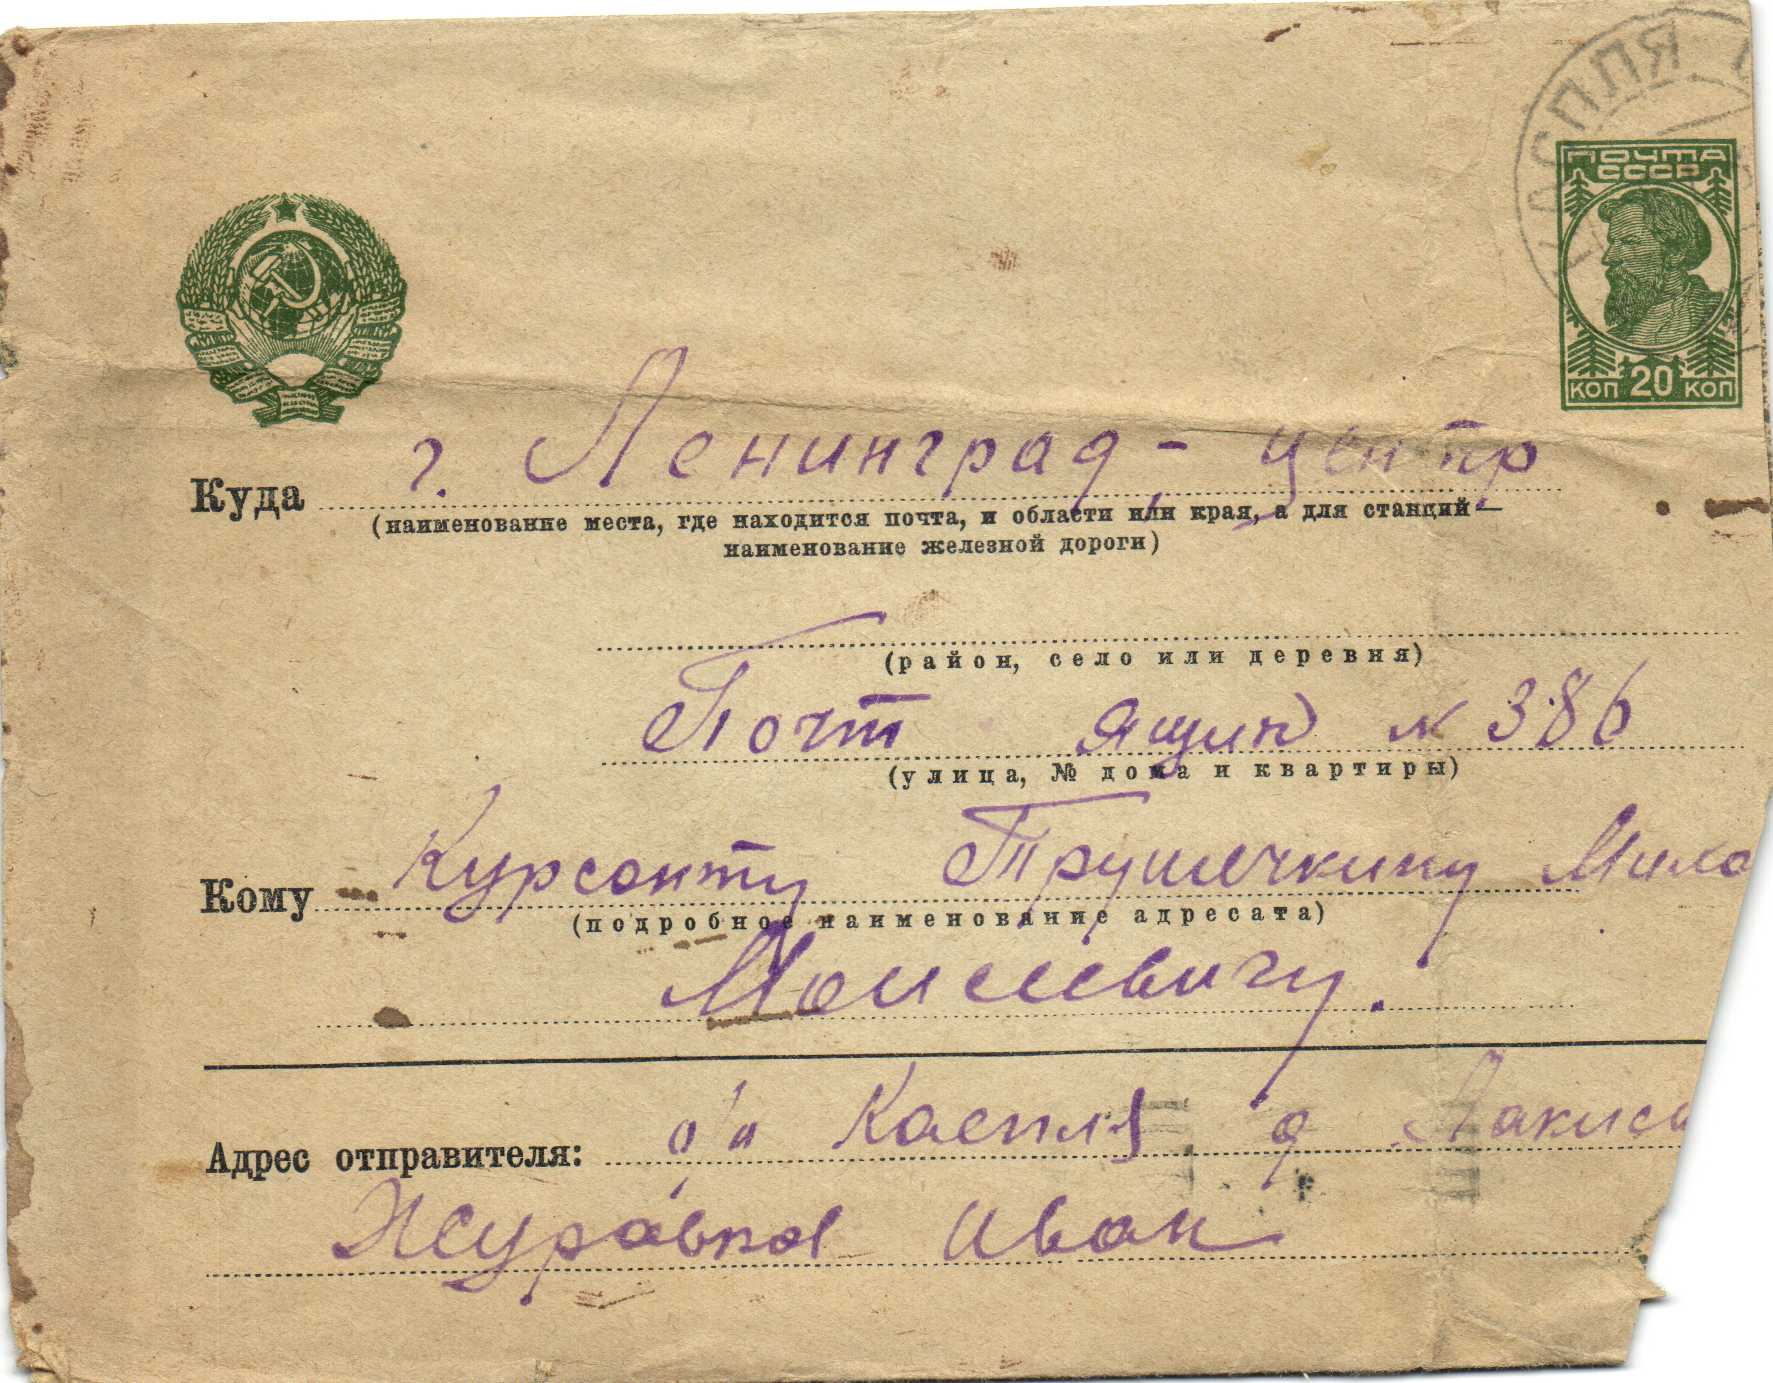 КАСПЛЯ
ПОЧТА
СССР
КОП 20 КОП
г. Ленинград - центр
Куда
(наименование места, где находится почта, и области или края, а для станций—
наименование железной дороги)
(район, село или деревня)
Почт ящик № 386
(улица, № дома и квартиры)
Кому Курсанту Трушечкину Миха
(подробное наименование адресата)
Моисеевичу.
Адрес отправителя: п/о Каспля д
Иван